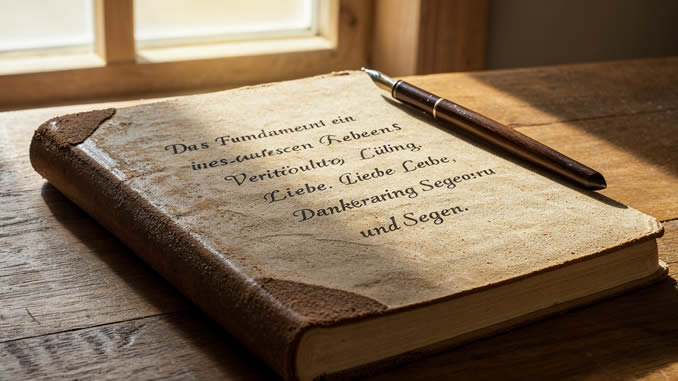 Das Fundament ein
ines-aufescen Rebens
Veritoulto, Lüling,
Liebe. Liede Leibe,
Dankeraring Segesru
und Segen.